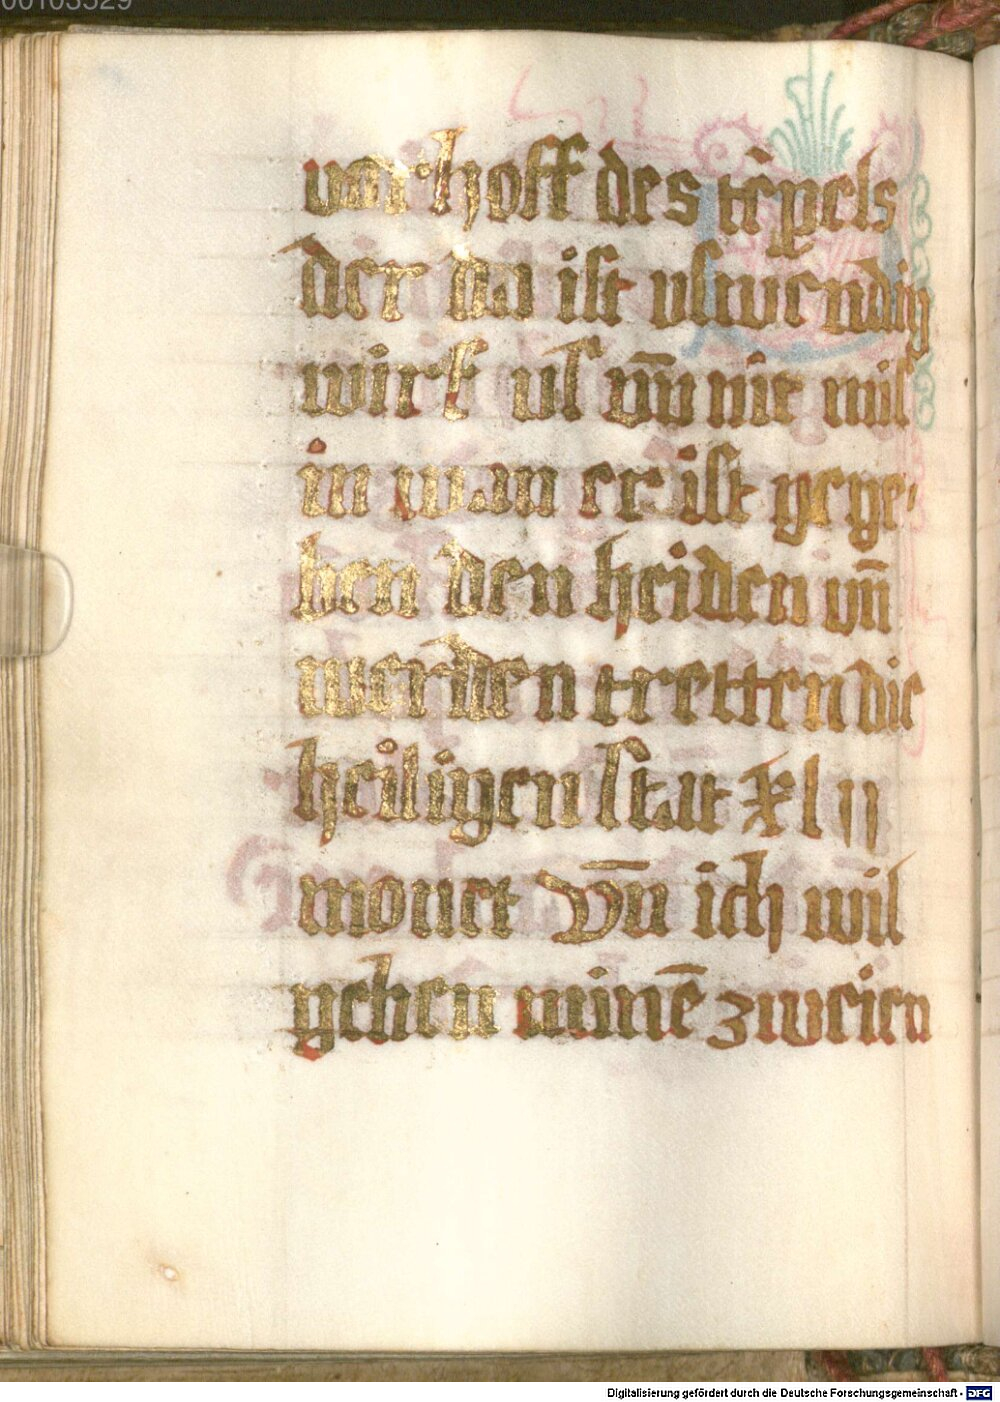 00103529
vorhoff des tēpels
der da ist uswendig
wirf us vn̄ nit mis
in wan er ist gege-
ben den heiden vn̄
werden tretten die
heiligen stat xlii
monet Vn̄ ich wil
geben minē zweien
Digitalisierung gefördert durch die Deutsche Forschungsgemeinschaft - DFG